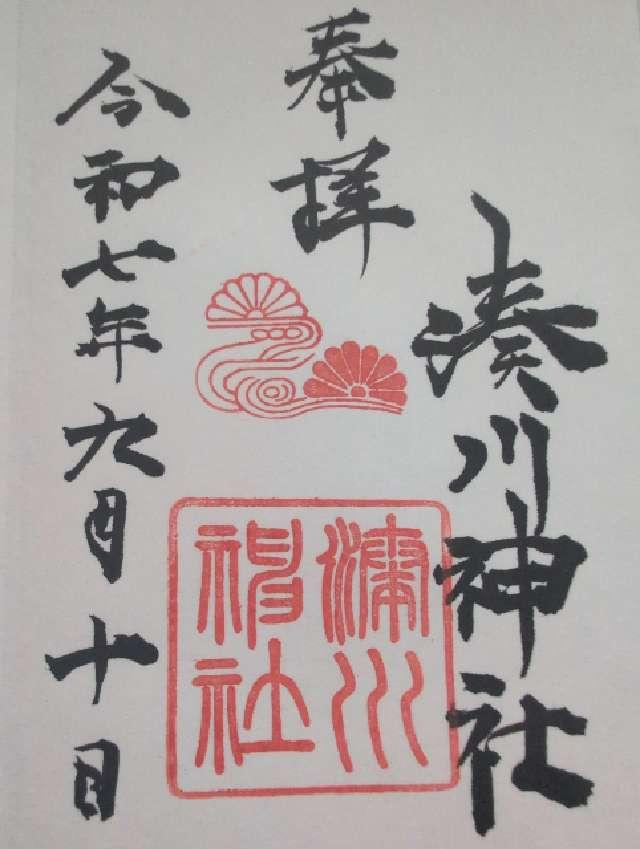 湊川神社
奉拝
湊川神社
令和七年九月十日